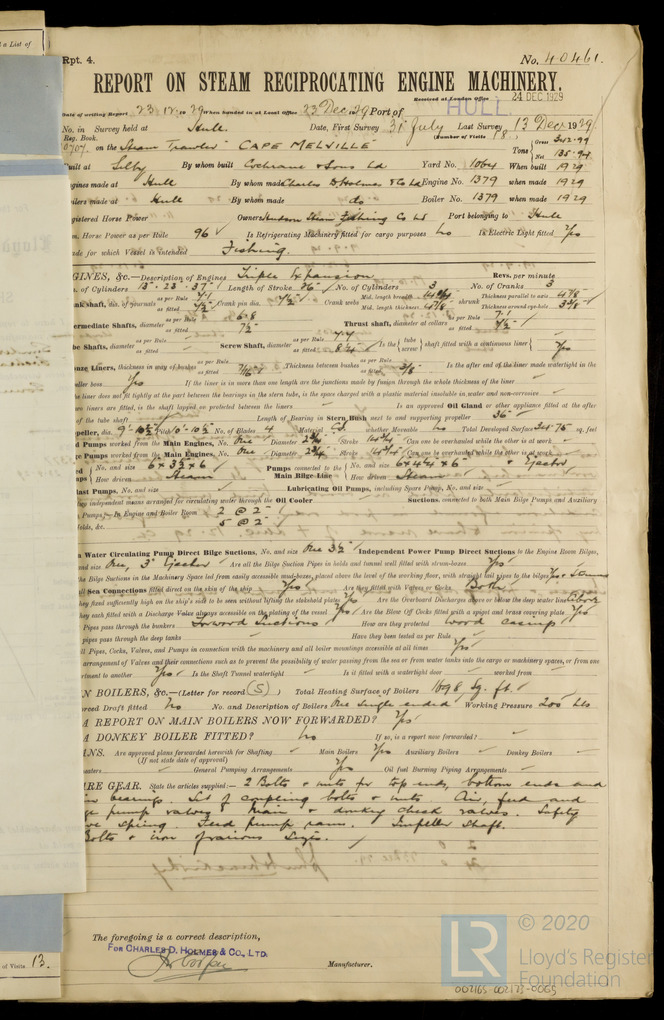 t a List of
Rpt. 4.
No. 40461.
REPORT ON STEAM RECIPROCATING ENGINE MACHINERY.
Received at London Office 24 DEC 1929
Date of writing Report 23.12.29 When handed in at Local Office 23 Dec. 29 Port of HULL
No. in Survey held at Hull. Date, First Survey 31st July Last Survey 13 Dec. 1929
Reg. Book. (Number of Visits 18)
on the Steam Trawler "CAPE MELVILLE" Tons Gross 342.99 Net 135.94
Built at Selby By whom built Cochrane & Sons Ld Yard No. 1064 When built 1929
Engines made at Hull By whom made Charles D. Holmes & Co Ld Engine No. 1379 when made 1929
Boilers made at Hull By whom made do Boiler No. 1379 when made 1929
gistered Horse Power Owners Hudson Steam Fishing Co Ld Port belonging to Hull
m. Horse Power as per Rule 96 Is Refrigerating Machinery fitted for cargo purposes No Is Electric Light fitted Yes
ade for which Vessel is intended Fishing.
GINES, &c.—Description of Engines Triple Expansion Revs. per minute
. of Cylinders 13"-23"-37" Length of Stroke 26" No. of Cylinders 3 No. of Cranks 3
ank shaft, dia. of journals as per Rule 7.1 as fitted 7½" Crank pin dia. 7½" Crank webs Mid. length breadth Mid. length thickness 4⅞" shrunk Thickness parallel to axis 4⅞" Thickness around eye-hole
ermediate Shafts, diameter as per Rule 6.8 as fitted 7½ Thrust shaft, diameter at collars as per Rule 7.1 as fitted 7½"
be Shafts, diameter as per Rule as fitted Screw Shaft, diameter as per Rule as fitted 8¼" Is the tube screw shaft fitted with a continuous liner Yes
onze Liners, thickness in way of bushes as per Rule as fitted Thickness between bushes as per Rule as fitted Is the after end of the liner made watertight in the
eller boss Yes If the liner is in more than one length are the junctions made by fusion through the whole thickness of the liner
he liner does not fit tightly at the part between the bearings in the stern tube, is the space charged with a plastic material insoluble in water and non-corrosive
wo liners are fitted, is the shaft lapped or protected between the liners Is an approved Oil Gland or other appliance fitted at the after
of the tube shaft Length of Bearing in Stern Bush next to and supporting propeller 36"
peller, dia. Pitch No. of Blades 4 Material C.I. whether Moveable No Total Developed Surface 34.75 sq. feet
d Pumps worked from the Main Engines, No. One Diameter Stroke Can one be overhauled while the other is at work
ge Pumps worked from the Main Engines, No. One Diameter Stroke Can one be overhauled while the other is at work
No. and size 6 x 3½ x 6 Pumps connected to the Main Bilge Line No. and size 6 x 4¼ x 6 & Ejector
How driven Steam How driven Steam
last Pumps, No. and size Lubricating Oil Pumps, including Spare Pump, No. and size
independent means arranged for circulating water through the Oil Cooler Suctions, connected to both Main Bilge Pumps and Auxiliary
Pumps;—In Engine and Boiler Room 2 @ 2"
olds, &c. 5 @ 2"
n Water Circulating Pump Direct Bilge Suctions, No. and size One 3½" Independent Power Pump Direct Suctions to the Engine Room Bilges,
and size One, 3" Ejector Are all the Bilge Suction Pipes in holds and tunnel well fitted with strum-boxes Yes
he Bilge Suctions in the Machinery Spaces led from easily accessible mud-boxes, placed above the level of the working floor, with straight tail pipes to the bilges Yes
ll Sea Connections fitted direct on the skin of the ship Yes Are they fitted with Valves or Cocks Both
they fixed sufficiently high on the ship's side to be seen without lifting the stokehold plates Yes Are the Overboard Discharges above or below the deep water line Above
hey each fitted with a Discharge Valve always accessible on the plating of the vessel Yes Are the Blow Off Cocks fitted with a spigot and brass covering plate Yes
Pipes pass through the bunkers Forward Suctions How are they protected Wood casing
pipes pass through the deep tanks Have they been tested as per Rule
ll Pipes, Cocks, Valves, and Pumps in connection with the machinery and all boiler mountings accessible at all times Yes
arrangement of Valves and their connections such as to prevent the possibility of water passing from the sea or from water tanks into the cargo or machinery spaces, or from one
rtment to another Yes Is the Shaft Tunnel watertight Is it fitted with a watertight door worked from
N BOILERS, &c.—(Letter for record (S)) Total Heating Surface of Boilers 1698 Sq. ft.
rced Draft fitted No No. and Description of Boilers One Single ended Working Pressure 200 lbs
A REPORT ON MAIN BOILERS NOW FORWARDED? Yes
A DONKEY BOILER FITTED? No If so, is a report now forwarded?
ANS. Are approved plans forwarded herewith for Shafting Main Boilers Yes Auxiliary Boilers Donkey Boilers
(If not state date of approval)
eaters General Pumping Arrangements Yes Oil fuel Burning Piping Arrangements
ARE GEAR. State the articles supplied:— 2 Bolts & nuts for top ends, bottom ends and
in bearings. Set of coupling bolts & nuts Air, feed and
ge pump valves Main & donkey check valves. Safety
ve spring. Feed pump rams. Impeller Shaft.
Bolts & iron of various Sizes.
The foregoing is a correct description,
FOR CHARLES D. HOLMES & CO., LTD.
Manufacturer.
of Visits 13.
LR
© 2020
Lloyd's Register
Foundation
002165-002173-0065